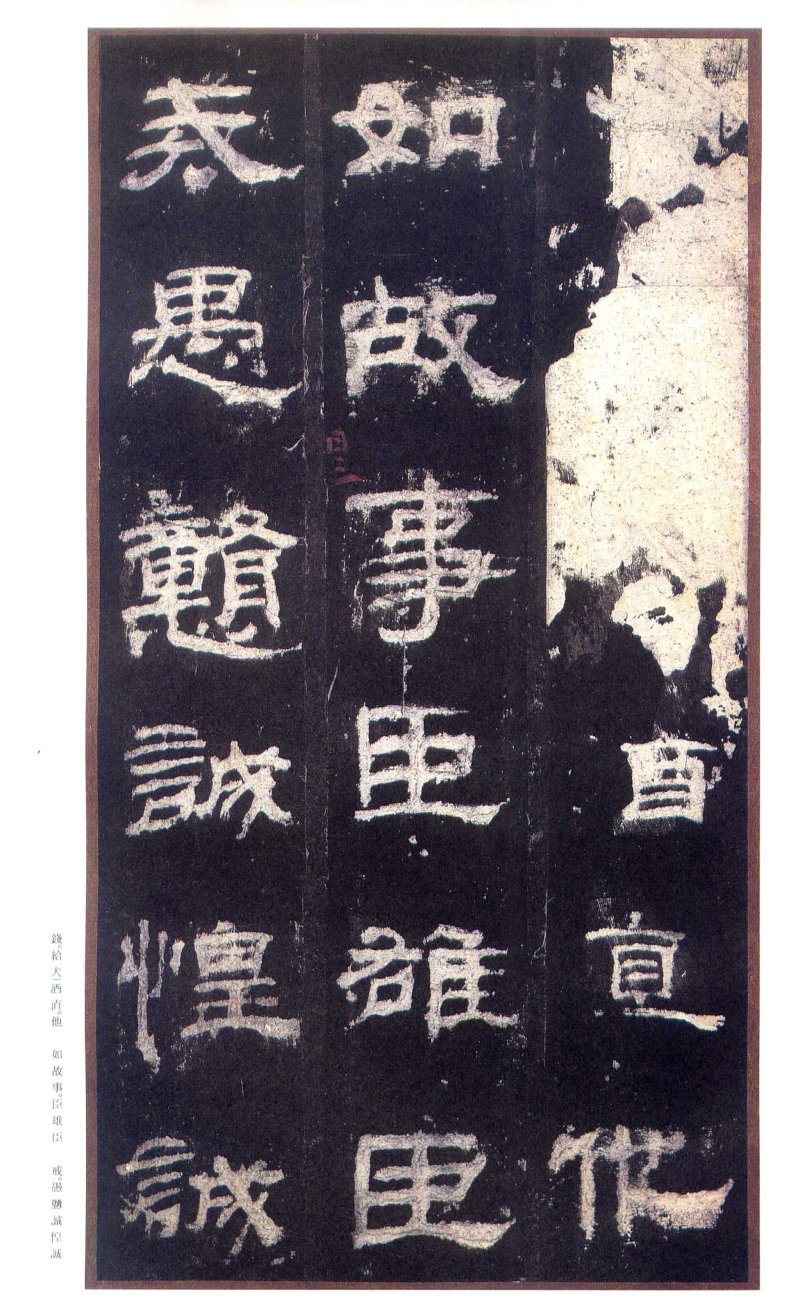 酒直他
如故事臣雄臣
戒愚戇誠惶誠
錢。給犬)酒直。他 如故事。臣雄臣 戒。愚戇誠惶誠